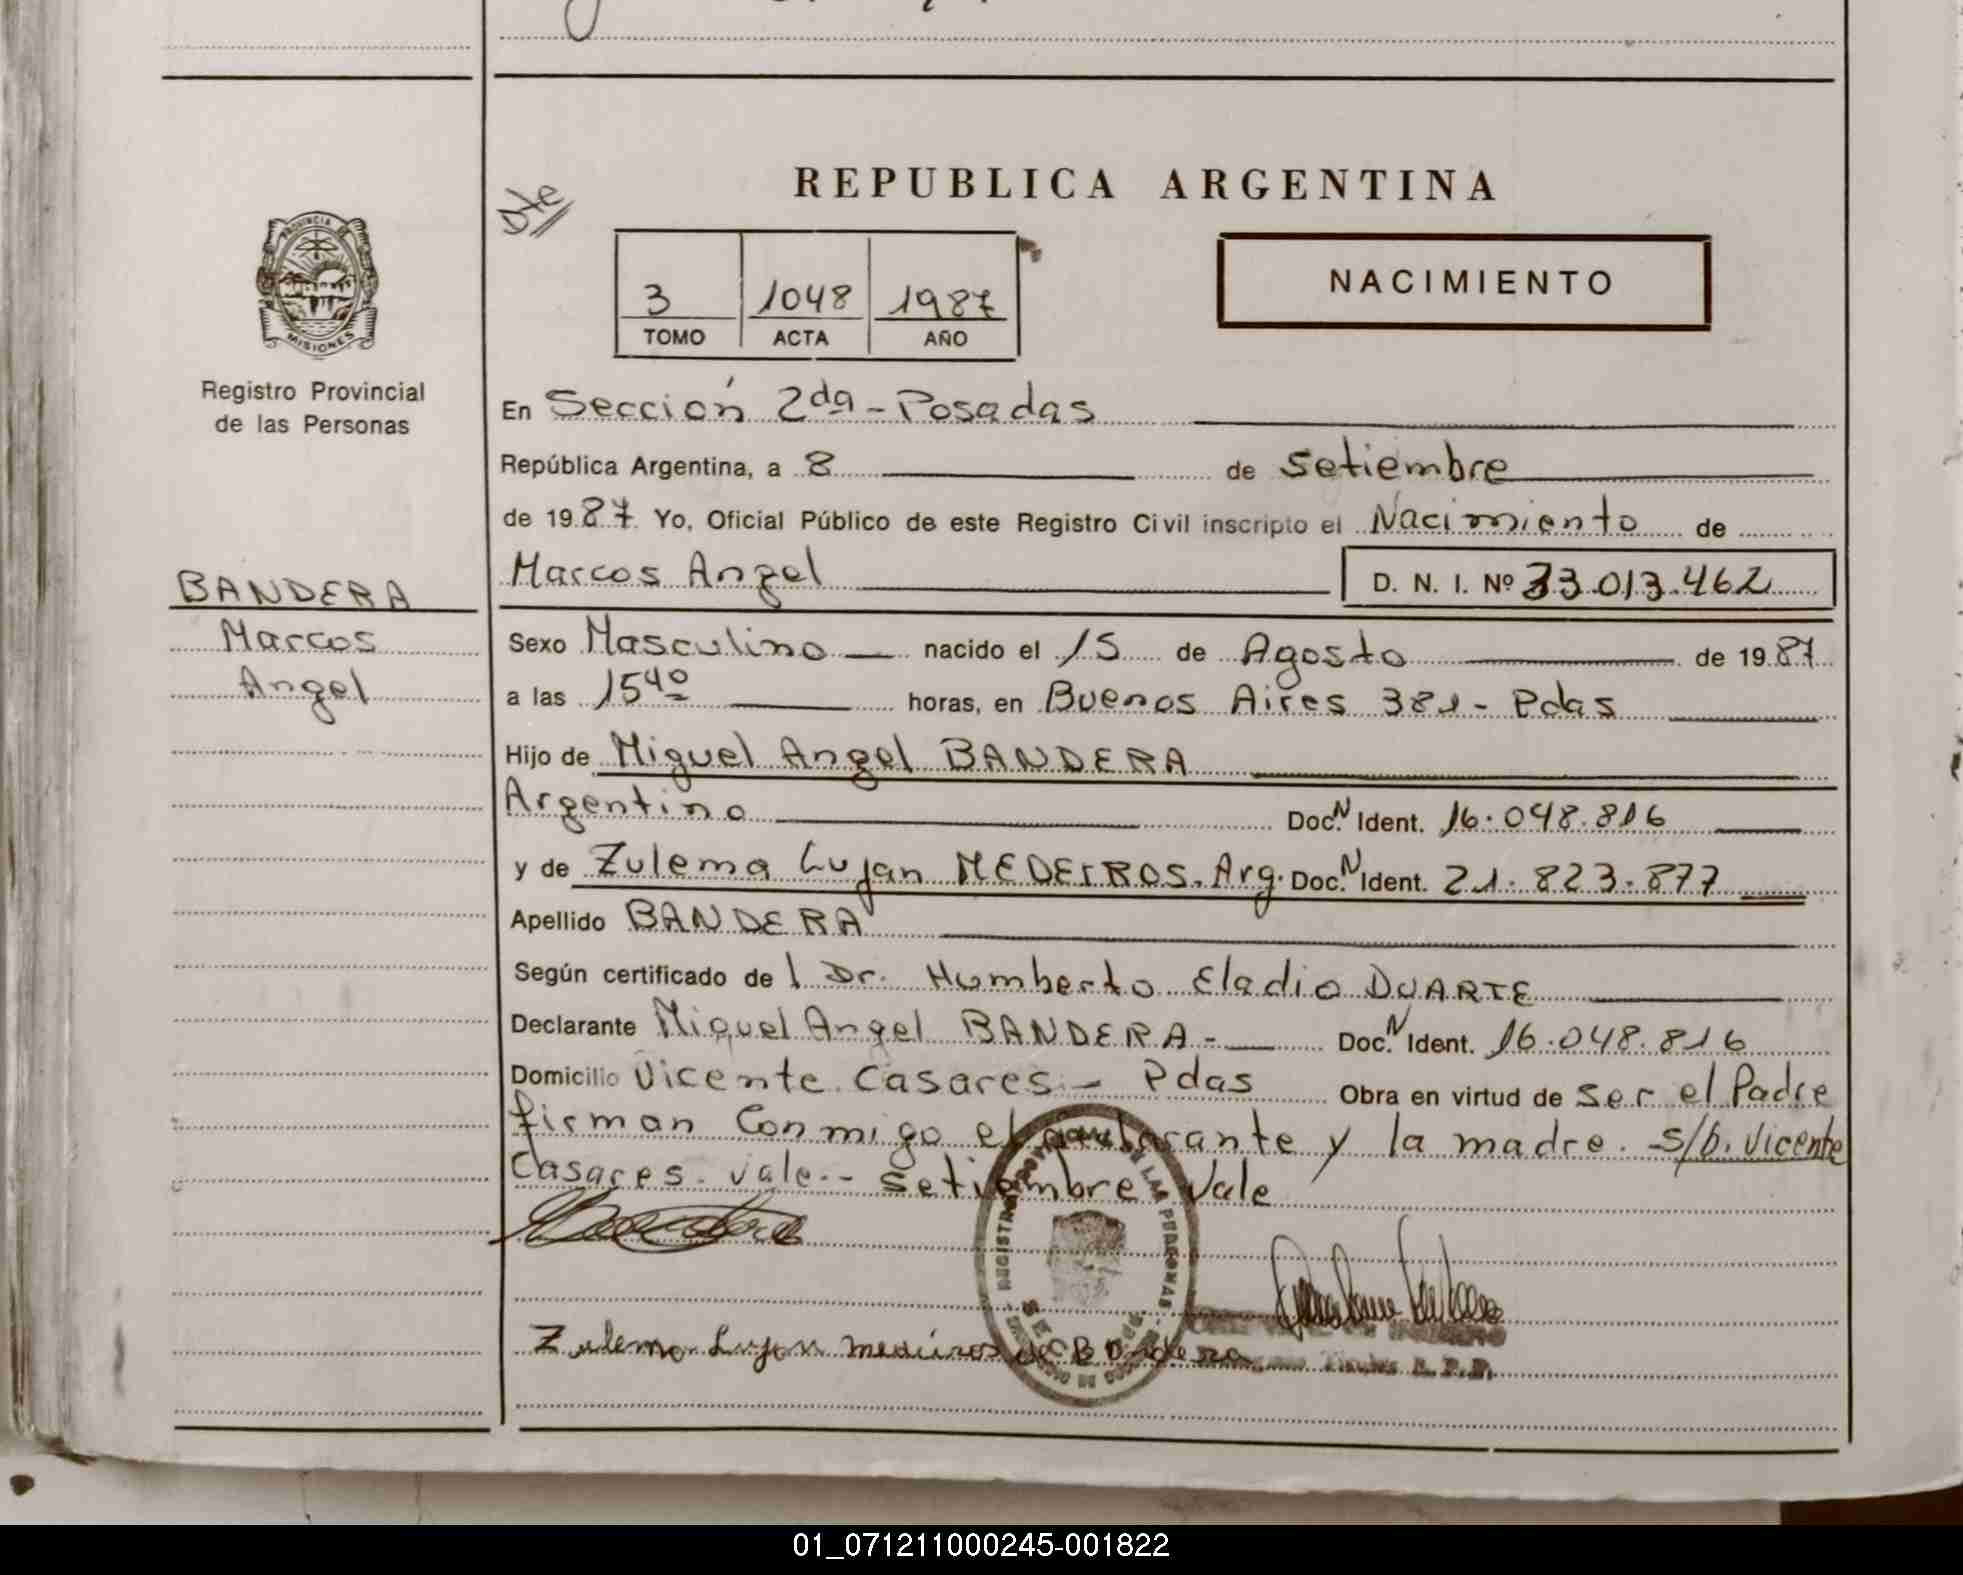 REPUBLICA ARGENTINA
Dte
3 1048 1987
TOMO ACTA AÑO
NACIMIENTO
PROVINCIA DE
MISIONES
Registro Provincial
de las Personas
BANDERA
Marcos
Angel
En Sección 2da - Posadas
República Argentina, a 8 de Setiembre
de 1987 Yo, Oficial Público de este Registro Civil inscripto el Nacimiento de
Marcos Angel D. N. I. Nº 33.013.462
Sexo Masculino nacido el 15 de Agosto de 1987
a las 15 40 horas, en Buenos Aires 381 - Pdas
Hijo de Miguel Angel BANDERA
Argentino Doc. N Ident. 16.048.816
y de Zulema Lujan MEDEIROS. Arg. Doc. N Ident. 21.823.877
Apellido BANDERA
Según certificado de l Dr. Humberto Eladio DUARTE
Declarante Miguel Angel BANDERA - Doc. N Ident. 16.048.816
Domicilio Vicente Casares - Pdas Obra en virtud de Ser el Padre
firman Conmigo el declarante y la madre. S/b. Vicente
Casares. vale.- Setiembre Vale
Zulema Lujan Medeiros de Bandera
01_071211000245-001822